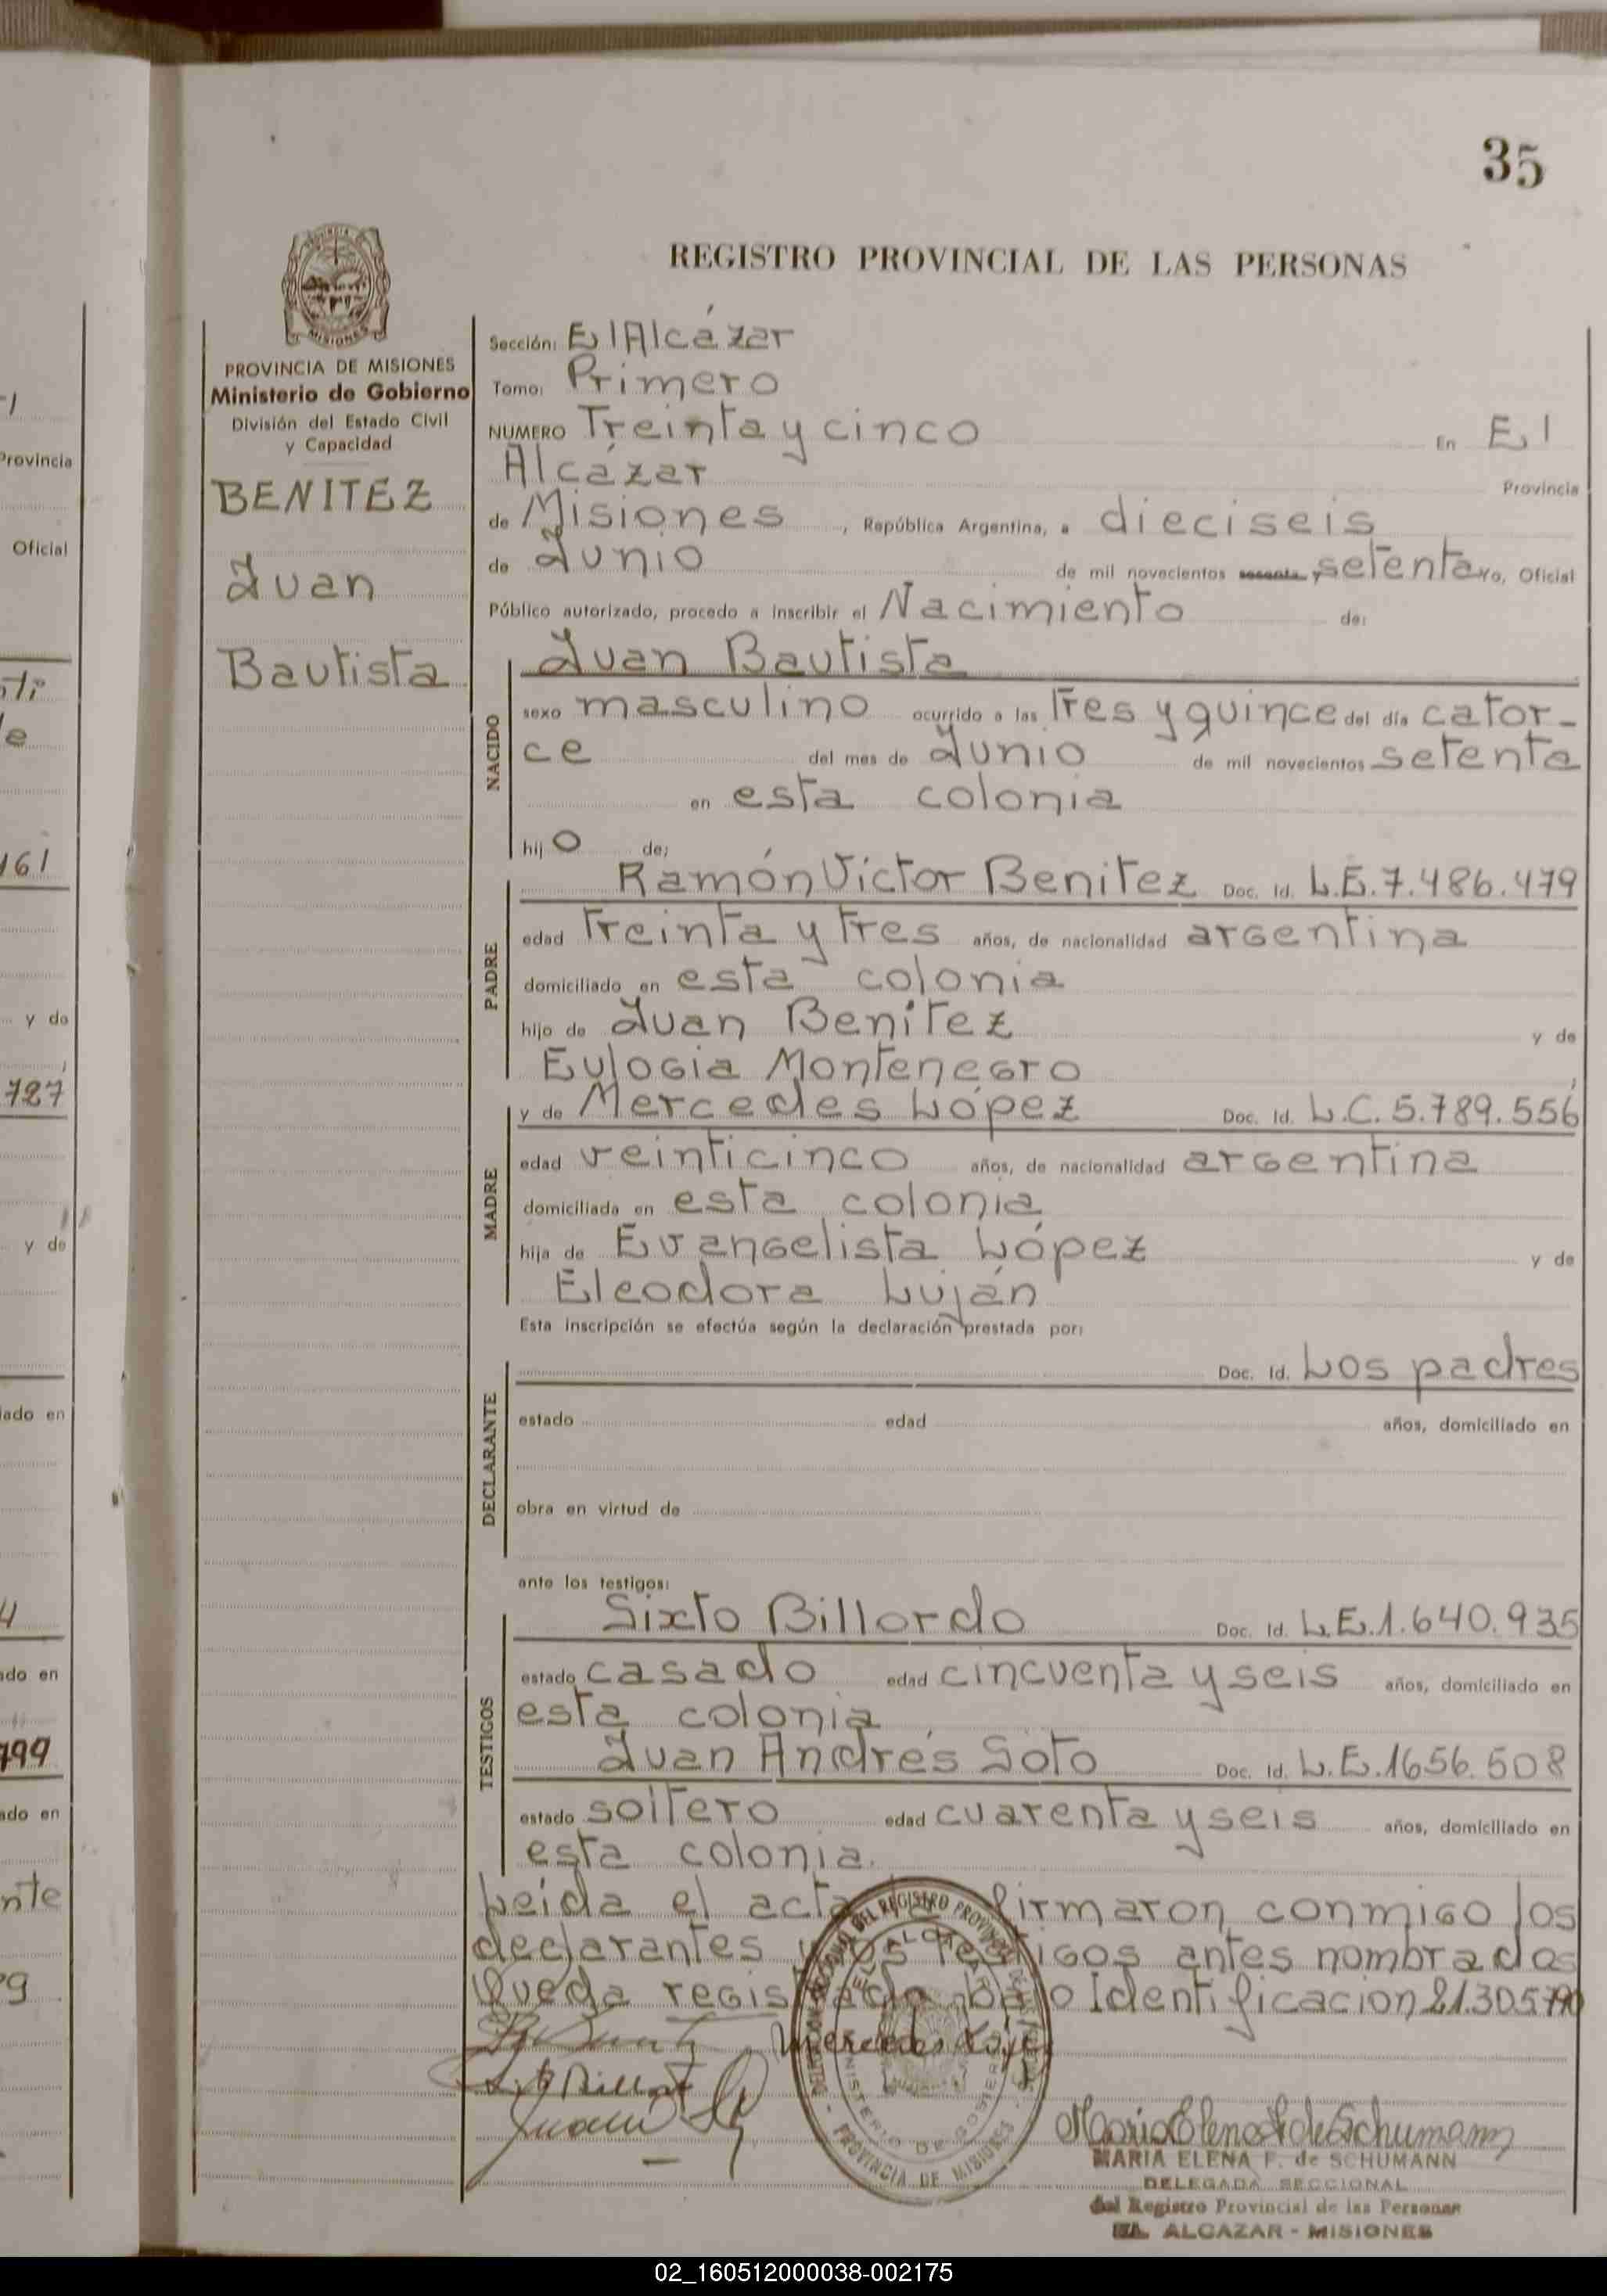 35
REGISTRO PROVINCIAL DE LAS PERSONAS
PROVINCIA DE MISIONES
Ministerio de Gobierno
División del Estado Civil
y Capacidad
BENITEZ
Juan
Bautista
Sección: El Alcázar
Tomo: Primero
NUMERO Treinta y cinco En El
Alcázar Provincia
de Misiones, República Argentina, a dieciseis
de Junio de mil novecientos sesenta y setenta yo, Oficial
Público autorizado, procedo a inscribir el Nacimiento de:
NACIDO
Juan Bautista
sexo masculino ocurrido a las Tres y quince del día cator-
ce del mes de Junio de mil novecientos setenta
en esta colonia
hijo de:
PADRE
Ramón Victor Benitez Doc. Id. L.E. 7.486.479
edad Treinta y Tres años, de nacionalidad argentina
domiciliado en esta colonia
hijo de Juan Benitez y de
Eulogia Montenegro
MADRE
y de Mercedes López Doc. Id. L.C. 5.789.556
edad veinticinco años, de nacionalidad argentina
domiciliada en esta colonia
hija de Evangelista López y de
Eleodora Luján
Esta inscripción se efectúa según la declaración prestada por:
DECLARANTE
Doc. Id. Los padres
estado edad años, domiciliado en
obra en virtud de
ante los testigos:
TESTIGOS
Sixto Billordo Doc. Id. L.E. 1.640.935
estado casado edad cincuenta y seis años, domiciliado en
esta colonia
Juan Andrés Soto Doc. Id. L.E. 1656.508
estado soltero edad cuarenta y seis años, domiciliado en
esta colonia.
Leída el acta la firmaron conmigo los
declarantes y los testigos antes nombrados
Queda registrado bajo Identificacion 21.305.790
Mercedes López
Maria Elena F de Schumann
MARIA ELENA F. de SCHUMANN
DELEGADA SECCIONAL
del Registro Provincial de las Personas
EL ALCAZAR - MISIONES
PROVINCIA DE MISIONES
MINISTERIO DE GOBIERNO
02_160512000038-002175